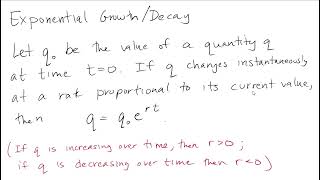 Exponential Growth/Decay
Let q₀ be the value of a quantity q
at time t=0. If q changes instantaneously
at a rate proportional to its current value,
then q = q₀e^{rt}
(If q is increasing over time, then r>0;
if q is decreasing over time then r<0)